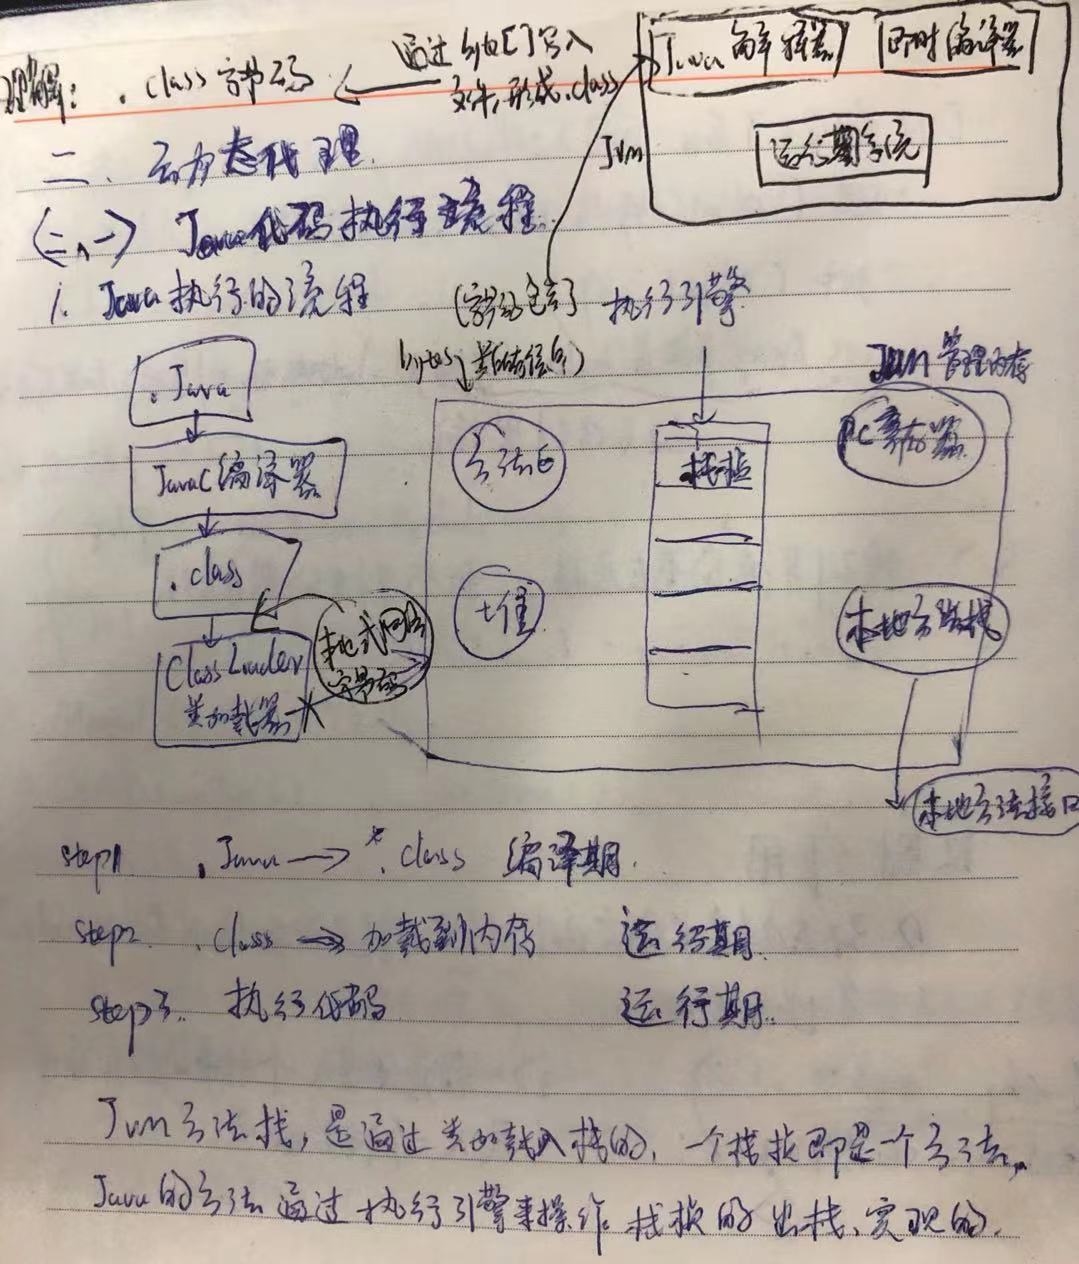 理解: .class字节码
通过 byte[]写入
文件,形成.class
Java 解释器
即时编译器
运行期系统
Jvm
二、动态代理
(二、一) Java代码执行流程
1. Java执行的流程
(字节码包含了
bytes 类的信息)
执行引擎
Jvm 管理内存
.Java
JavaC编译器
.class
ClassLoader
类加载器
本地或网络
字节码
方法区
堆
栈桢
PC寄存器
本地方法栈
本地方法接口
step1 .Java → *.class 编译期.
step2. .class → 加载到内存 运行期.
step3. 执行代码 运行期.
Jvm方法栈,是通过类加载入栈的,一个栈桢即是一个方法,
Java的方法通过执行引擎来操作栈桢的出栈、实现的.